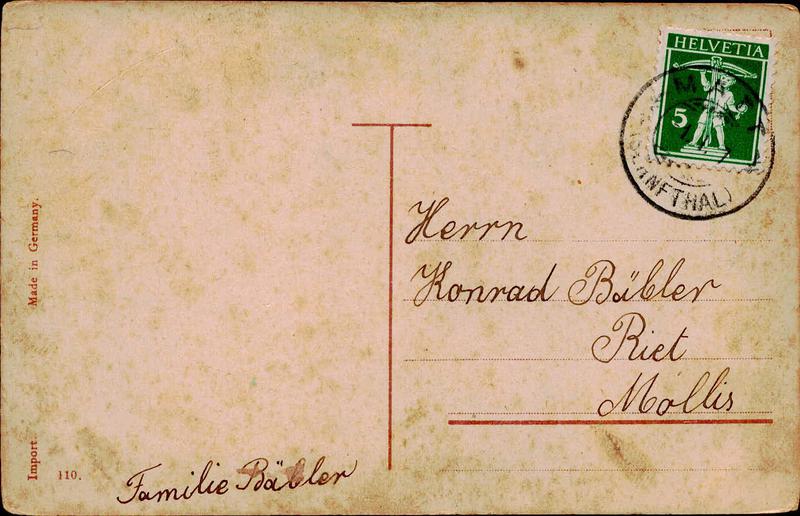 HELVETIA
5
(SERNFTHAL)
Herrn
Konrad Bäbler
Riet
Mollis
Familie Bäbler
Made in Germany.
Import.
110.